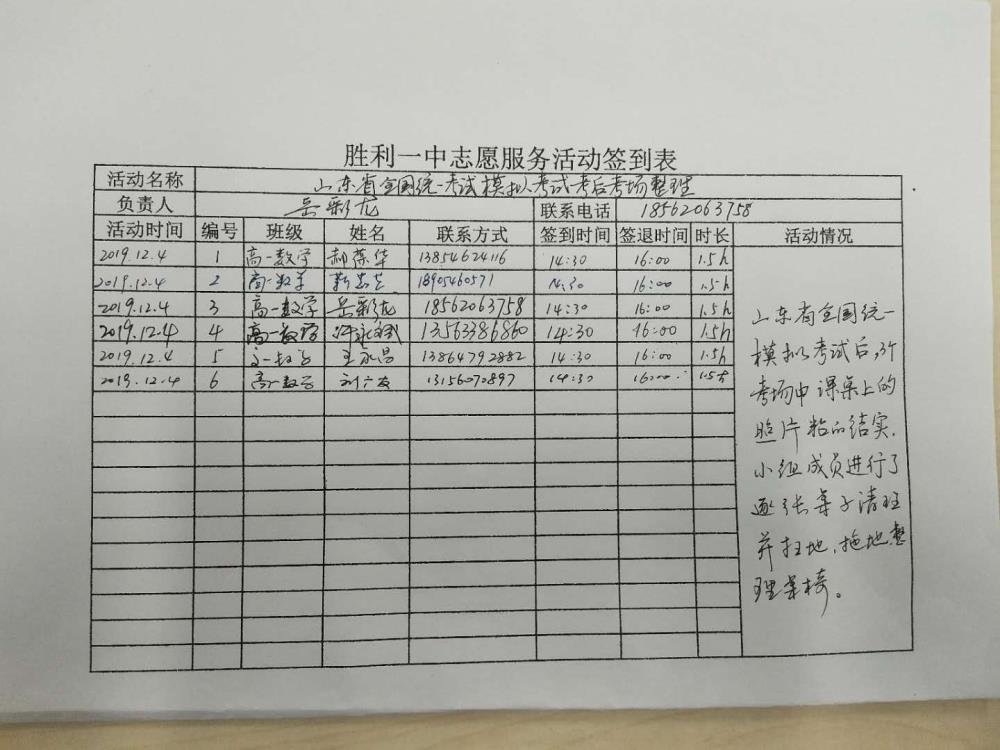 胜利一中志愿服务活动签到表
活动名称 山东省全国统一考试模拟考试考后考场整理
负责人 岳彩龙 联系电话 18562063758
活动时间 编号 班级 姓名 联系方式 签到时间 签退时间 时长 活动情况
2019.12.4 1 高一数学 郝葆华 13854624116 14:30 16:00 1.5h
2019.12.4 2 高一数学 18905460571 14:30 16:00 1.5h
2019.12.4 3 高一数学 岳彩龙 18562063758 14:30 16:00 1.5h
2019.12.4 4 高一数学 13563386860 14:30 16:00 1.5h
2019.12.4 5 王永昌 13864792882 14:30 16:00 1.5h
2019.12.4 6 高一数学 刘广友 13156070897 14:30 16:00 1.5h
山东省全国统一
模拟考试后,
考场中课桌上的
照片粘的结实,
小组成员进行了
逐张桌子清理
并扫地、拖地整
理桌椅。